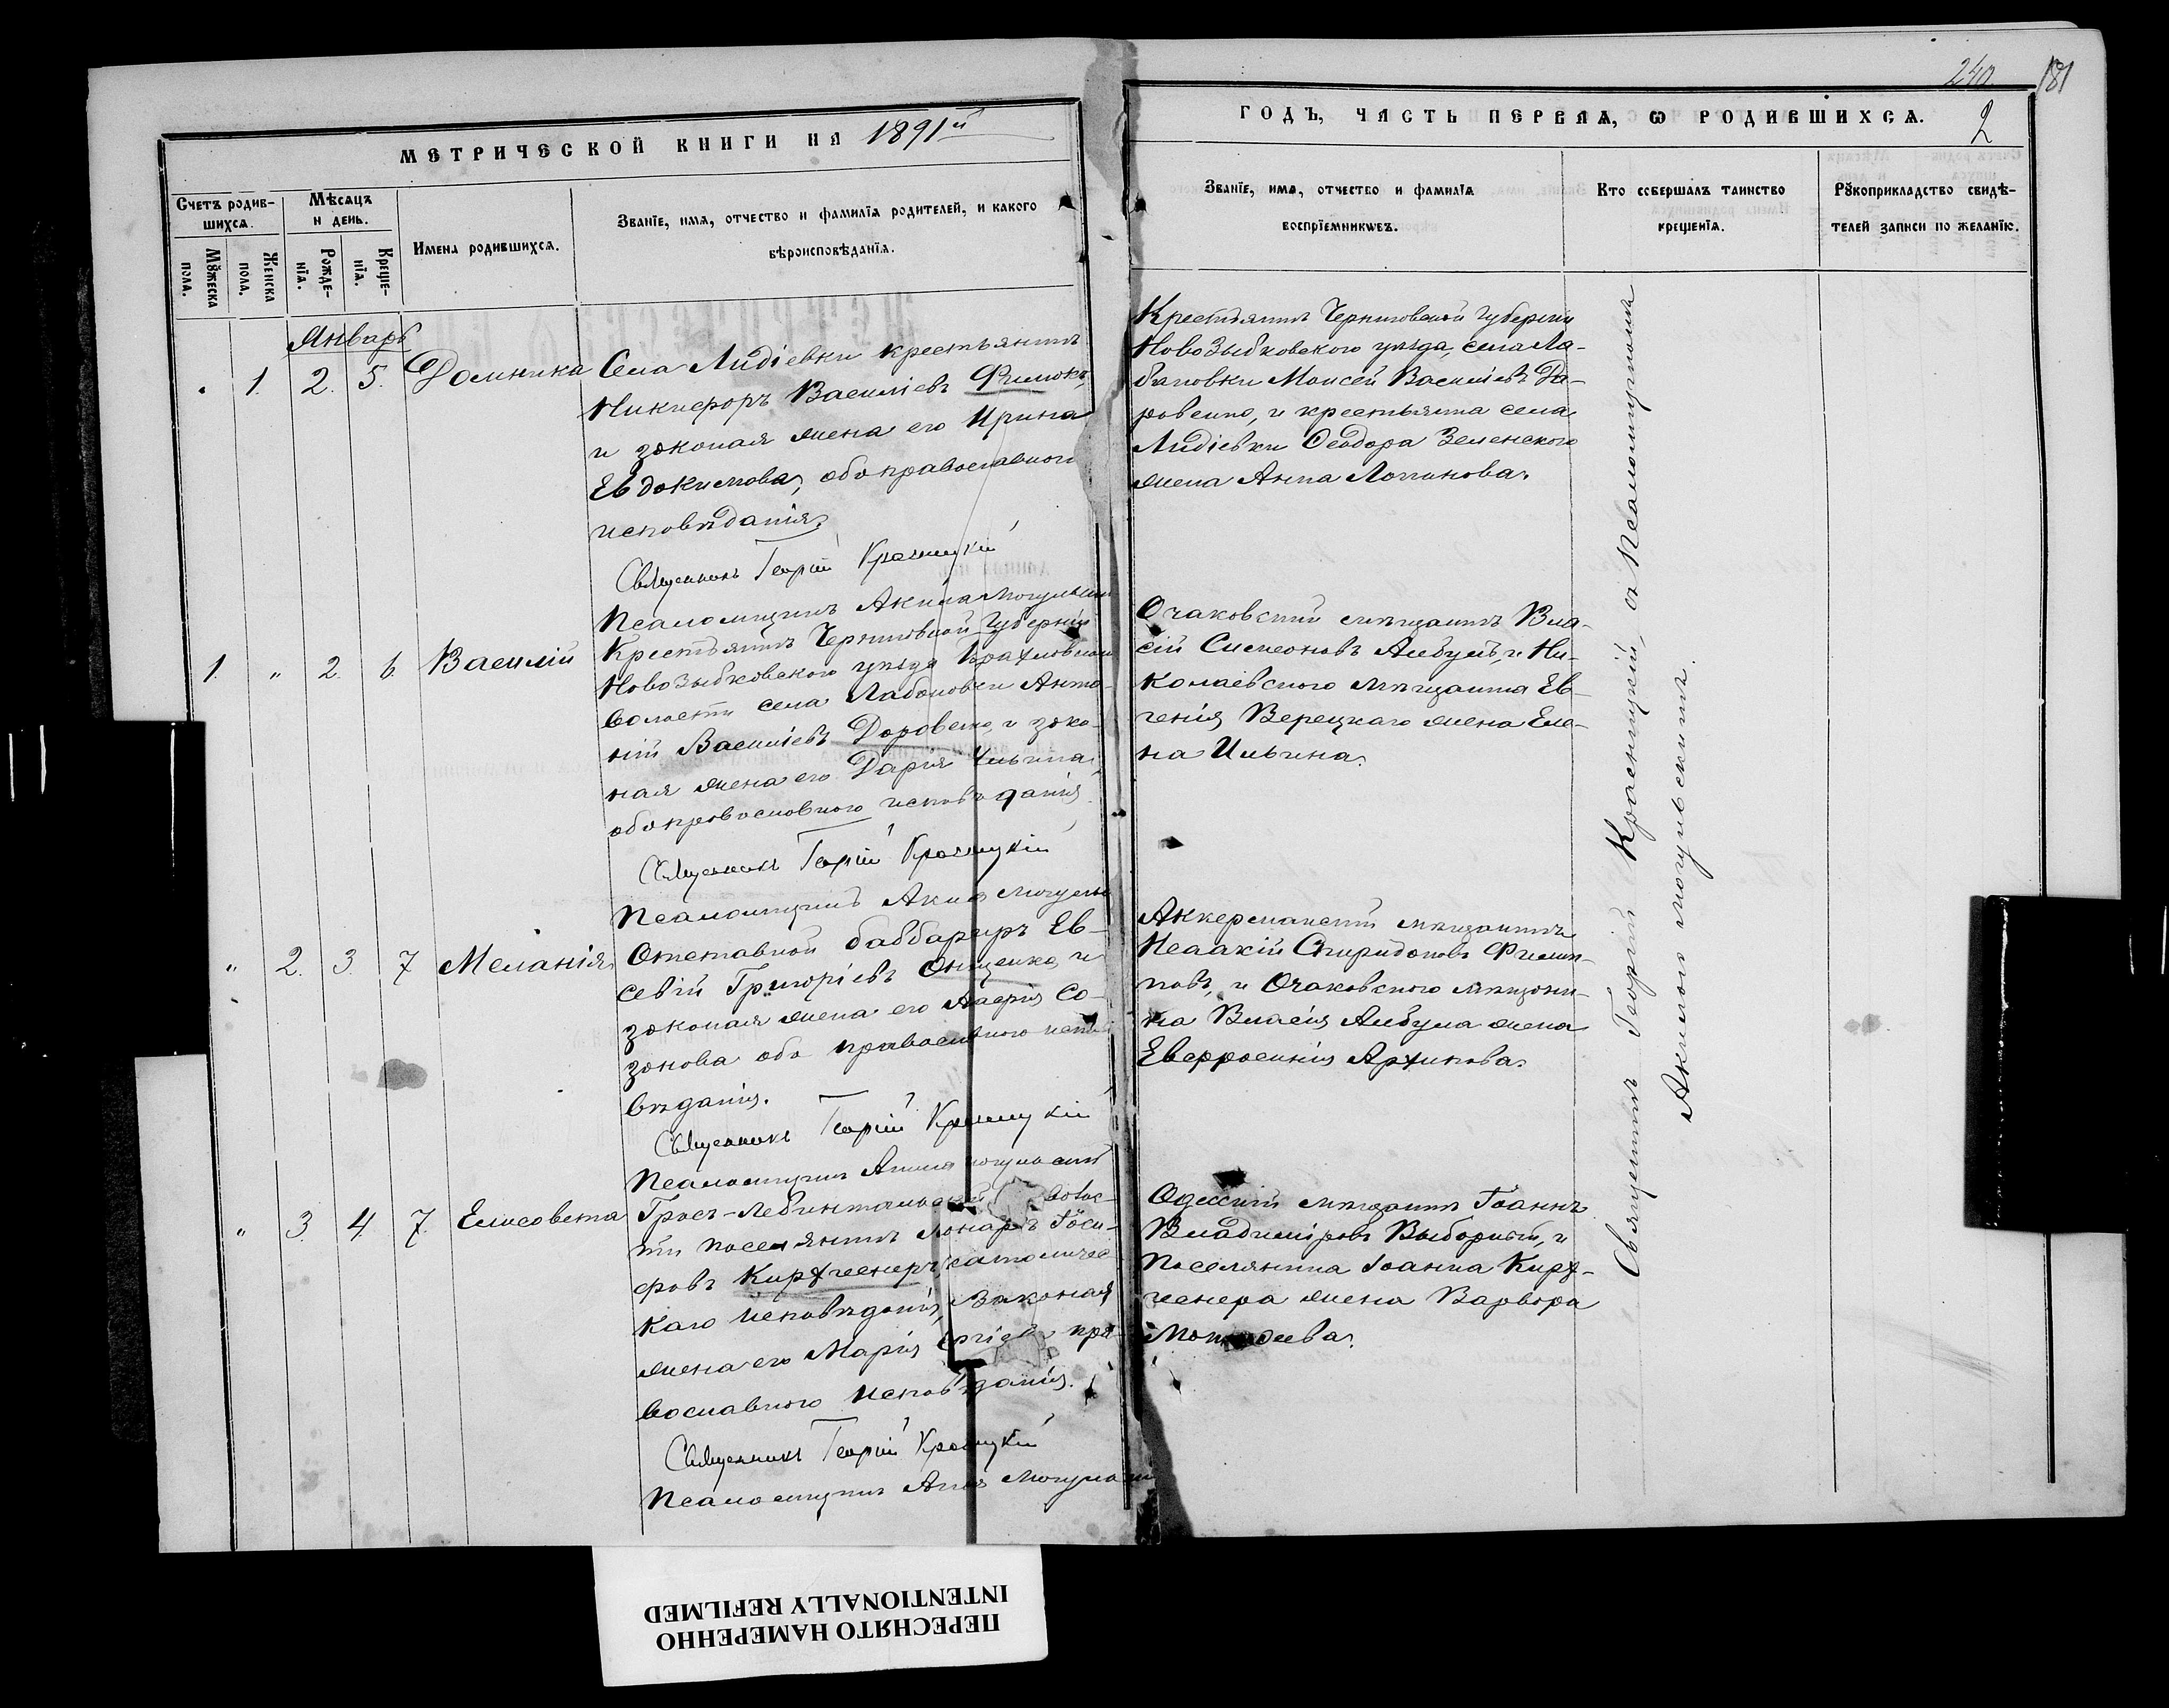 240. 181
МЕТРИЧЕСКОЙ КНИГИ НА 1891й
ГОДЪ, ЧАСТЬ ПЕРВАЯ, Ѡ РОДИВШИХСѦ. 2
Счетъ родив-
шихсѧ.
Мѣсѧцъ
и день.
Мꙋжеска
пола.
Женска
пола.
Рожде-
нїѧ.
Креще-
нїѧ.
Имена родившихсѧ.
Званїе, имѧ, отчество и фамилїѧ родителей, и какого
вѣроисповѣданїѧ.
Званїе, имѧ, отчество и фамилїѧ
воспрїемникѡвъ.
Кто совершалъ таинство
крещенїѧ.
Рꙋкоприкладство свидѣ-
телей записи по желанїю.
Январь
" 1. 2. 5. Домникa
Села Лидіевки крестьянинъ
Никифоръ Василіевъ
и законая жена его Ирина
Евдокимова, обо православного
исповѣданія.
Священникъ Георгій Красницкій
Псаломщикъ Акила Могульскій
Крестьянинъ Черниговской Губерніи
НовоЗыбковского уѣзда, села Ла-
бановки Моисей Василіевъ До-
ровенко, и крестьянина села
Лидіевки Феодора Зеленского
жена Анна Логинова.
1. " 2. 6. Василій
Крестьянинъ Черниговской Губерніи
НовоЗыбковского уѣзда
волости села Лабановки Анто-
ній Василіевъ Доровенко, и зако-
ная жена его Дарія Ильина,
обо православного исповѣданія.
Священникъ Георгій Красницкій
Псаломщикъ Акила Могульскій
Очаковскій мѣщанинъ Вла-
сій Симеоновъ Албулъ, и Ни-
колаевского мѣщанина Ев-
генія Верецкаго жена Еле-
на Ильина.
" 2. 3. 7 Меланія
Отставной Ев-
севій Григоріевъ Онищенко и
законая жена его Со-
зонова обо православного испо-
вѣданія.
Священникъ Георгій Красницкій
Псаломщикъ Акила Могульскій
Аккерманскій мѣщанинъ
Исаакій Спиридоновъ Филип-
повъ, и Очаковского мѣщани-
на Власія Албула жена
Евфросинія Архипова.
" 3. 4. 7. Елисавета
Грос-Либентальской волос-
ти поселянинъ Іоси-
фовъ Кирхгеснеръ, католичес-
каго исповѣданія, законая
жена его Марія пра-
вославного исповѣданія.
Священникъ Георгій Красницкій
Псаломщикъ Акила Могульскій
Одесскій мѣщанинъ Іоаннъ
Владиміровъ Выборный, и
Поселянина Іоанна Кирх-
геснера жена Варвара
Священникъ Георгій Красницкій, съ Псаломщикомъ
Акилою Могульскимъ.
ПЕРЕСНЯТО НАМЕРЕННО
INTENTIONALLY REFILMED